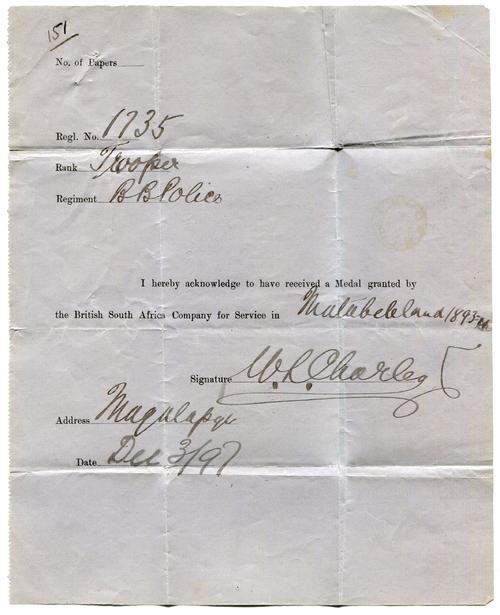 151
No. of Papers
Regl. No. 1735
Rank Trooper
Regiment B B Police
I hereby acknowledge to have received a Medal granted by
the British South Africa Company for Service in Matabeleland 1893
Signature W. L. Charley
Address Magalapye
Date Dec 3/97